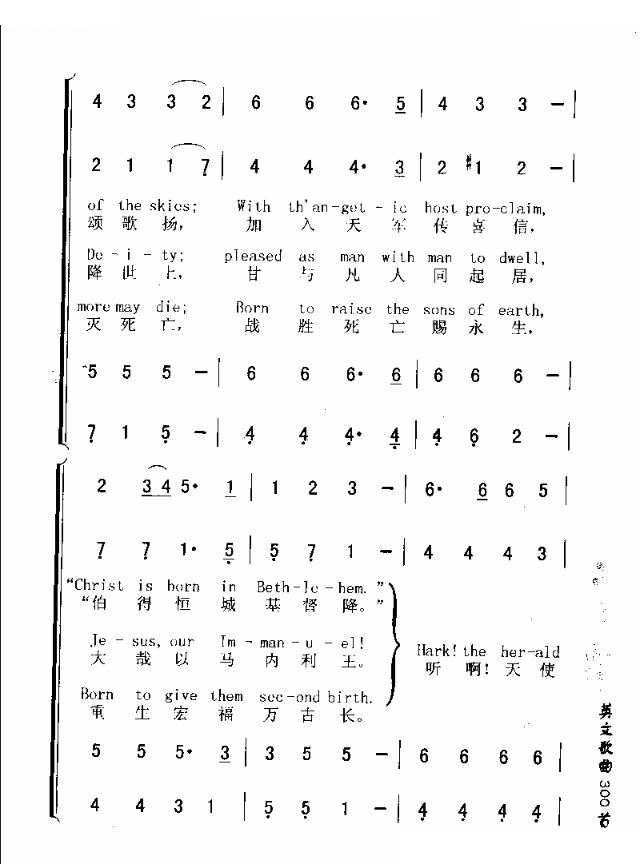 4 3 3 2 | 6 6 6· 5 | 4 3 3 – |
2 1 1 7 | 4 4 4· 3 | 2 #1 2 – |
of the skies; With th'an-get-ic host pro-claim,
颂 歌 扬， 加 入 天 军 传 喜 信，
De-i-ty; pleased as man with man to dwell,
降 世 上， 甘 与 凡 人 同 起 居，
more may die; Born to raise the sons of earth,
灭 死 亡， 战 胜 死 亡 赐 永 生，
5 5 5 – | 6 6 6· 6 | 6 6 6 – |
7 1 5 – | 4 4 4· 4 | 4 6 2 – |
2 3 4 5· 1 | 1 2 3 – | 6· 6 6 5 |
7 7 1· 5 | 5 7 1 – | 4 4 4 3 |
“Christ is born in Beth-le-hem.”
“伯 得 恒 城 基 督 降。”
Je-sus, our Im-man-u-el!
大 哉 以 马 内 利 王。
Hark! the her-ald
听 啊！天 使
Born to give them sec-ond birth.
重 生 宏 福 万 古 长。
5 5 5· 3 | 3 5 5 – | 6 6 6 6 |
4 4 3 1 | 5 5 1 – | 4 4 4 4 |
英文歌曲300首